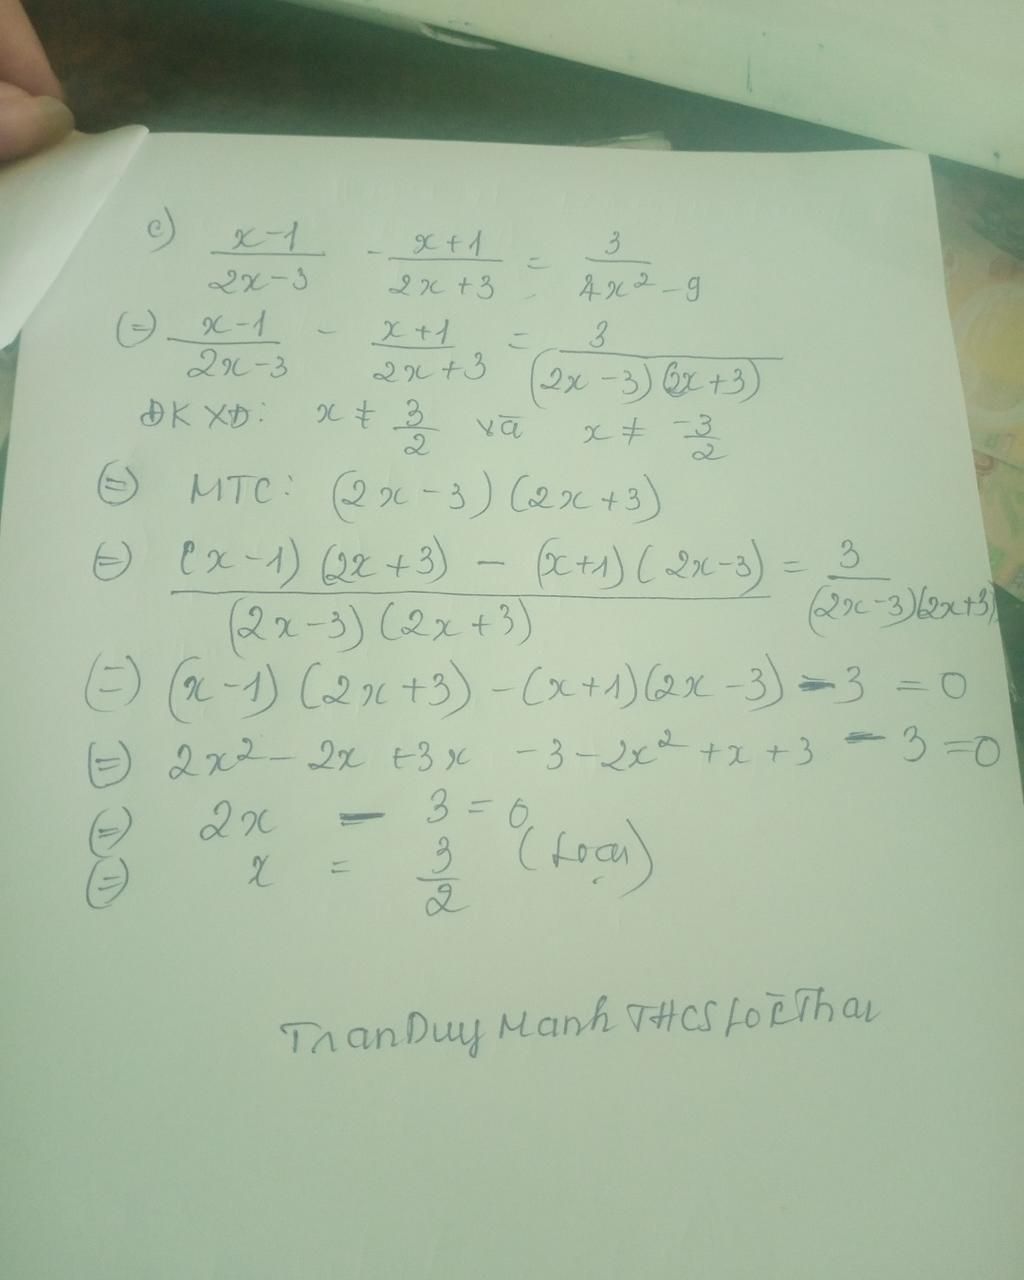 c) \frac{x-1}{2x-3} - \frac{x+1}{2x+3} = \frac{3}{4x^2-9}
(=) \frac{x-1}{2x-3} - \frac{x+1}{2x+3} = \frac{3}{(2x-3)(2x+3)}
ĐKXĐ: x ≠ \frac{3}{2} và x ≠ \frac{-3}{2}
(=) MTC: (2x-3)(2x+3)
(=) \frac{(x-1)(2x+3) - (x+1)(2x-3)}{(2x-3)(2x+3)} = \frac{3}{(2x-3)(2x+3)}
(=) (x-1)(2x+3) - (x+1)(2x-3) - 3 = 0
(=) 2x^2 - 2x + 3x - 3 - 2x^2 + x + 3 - 3 = 0
(=) 2x - 3 = 0
(=) x = \frac{3}{2} (Loại)
Tran Duy Manh THCS